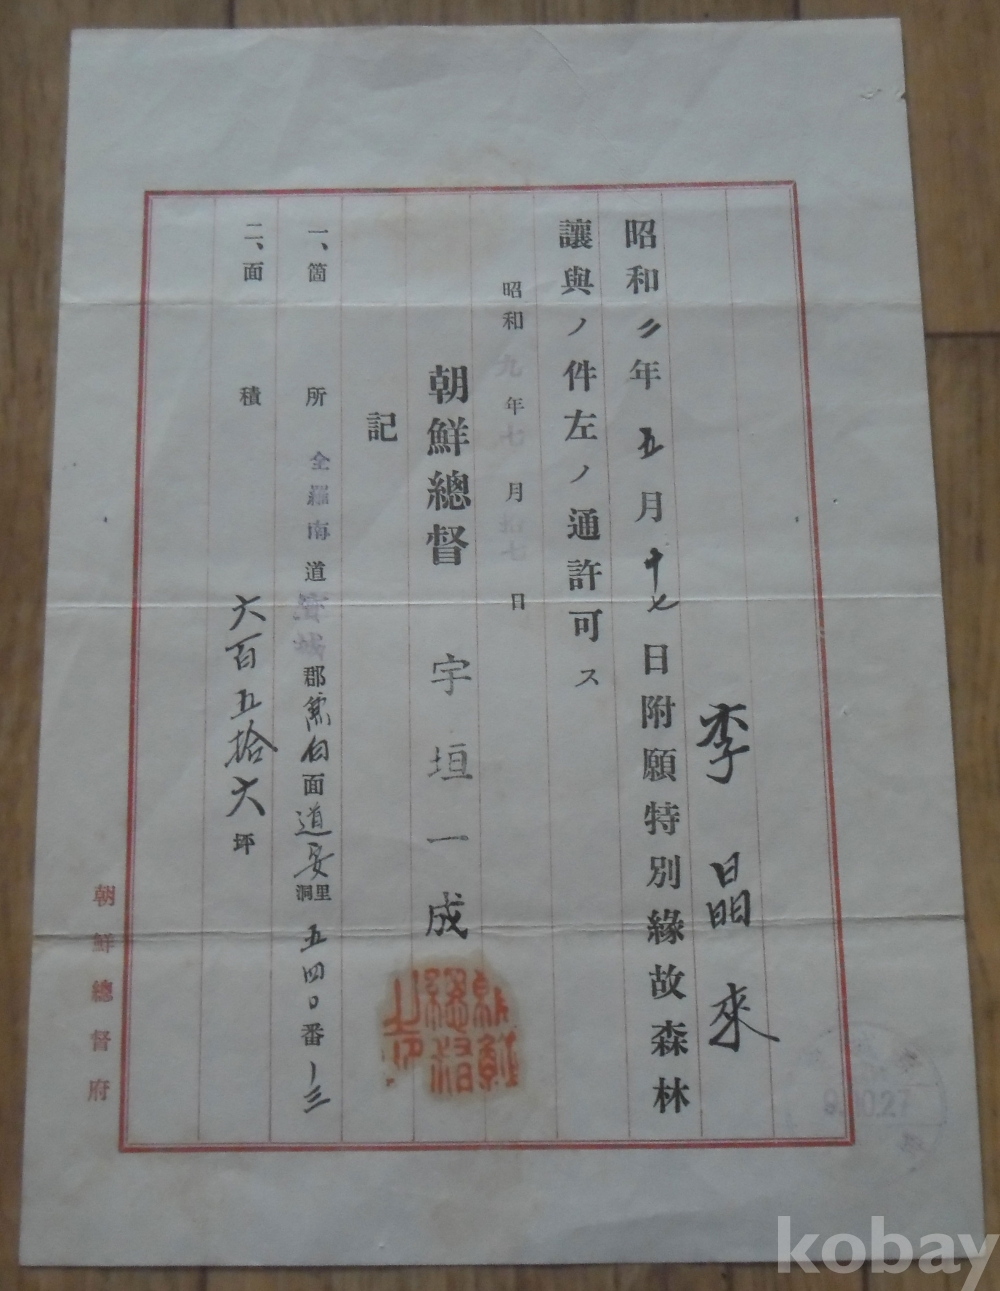 李晶來
昭和二年五月十七日附願特別緣故森林
讓與ノ件左ノ通許可ス
昭和九年七月拾七日
朝鮮總督 宇垣一成
朝鮮總督之印
記
一、箇所 全羅南道寶城郡熊白面道安里洞五四〇番ノ三
二、面積 六百五拾六坪
朝鮮總督府
9.10.27
kobay